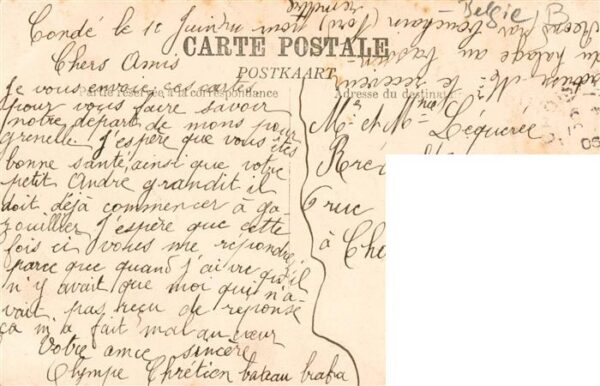 Belgie / B
Condé le 1e Juin
CARTE POSTALE
POSTKAART
Partie réservée à la correspondance
Adresse du destinataire
Chers Amis
Je vous envoie ces cartes
pour vous faire savoir
notre départ de mons pour
grenelle. J'espère que vous êtes
bonne santé, ainsi que votre
petit André grandit il
doit déjà commencer à ga-
zouiller J'espère que cette
fois ci vous me répondre,
parce que quand j'ai vu qu'il
n'y avait que moi qui n'a-
vait pas reçu de réponse
ça m'a fait mal au cœur
Votre amie sincère
Olympe Chrétien bateau
Mr et Mme Léquerec
6 rue
à Che